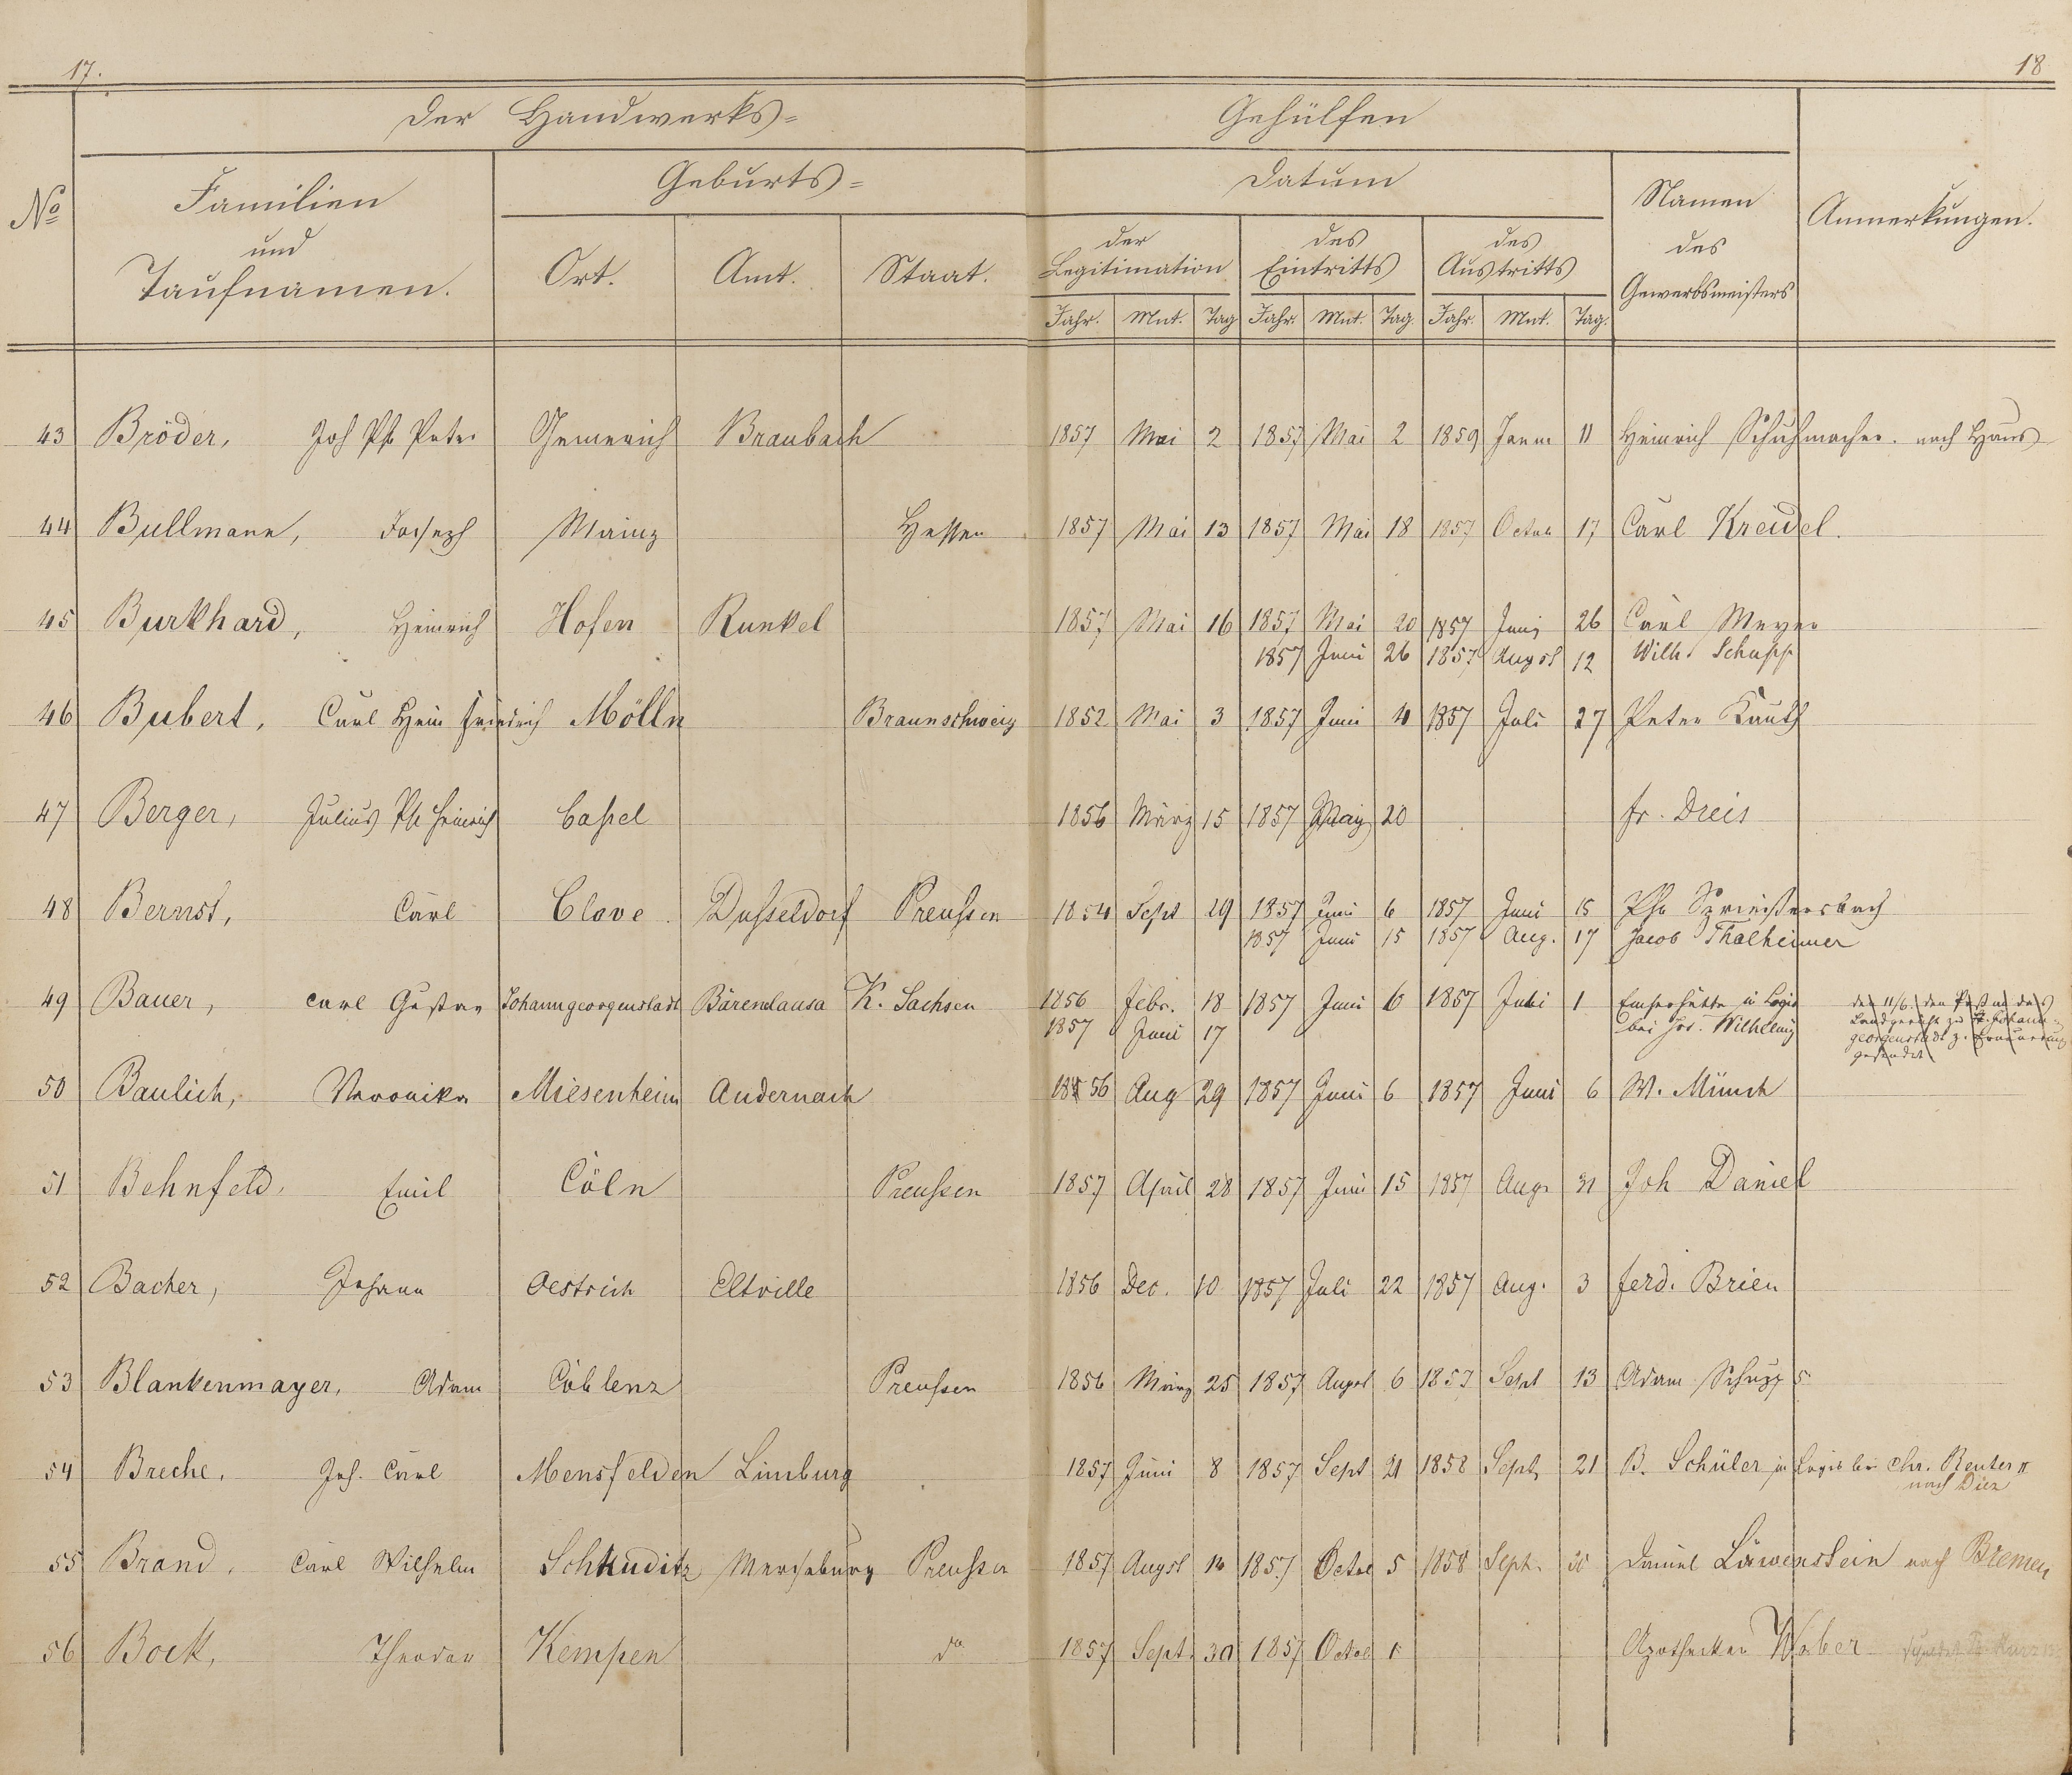 17. 18
Der Handwerks= Gehülfen
No Familien und Taufnamen. Geburts= Datum Namen des Gewerbsmeisters Anmerkungen.
Ort. Amt. Staat. der Legitimation des Eintritts des Austritts
Jahr. Mnt. Tag Jahr. Mnt. Tag. Jahr. Mnt. Tag.
43 Bröder, Joh Ph Peter Gemerich Braubach 1857 Mai 2 1857 Mai 2 1859 Janu 11 Heinrich Schuhmacher. nach Haus
44 Bullmann, Joseph Mainz Hessen 1857 Mai 13 1857 Mai 18 1857 Octob 17 Carl Kreidel.
45 Burkhard, Heinrich Hofen Runkel 1857 Mai 16 1857 Mai 20 1857 Juni 26 Carl Meyer
1857 Juni 26 1857 Augst 12 Wilh. Schupp
46 Bubert, Carl Hein Friedrich Mölln Braunschweig 1852 Mai 3 1857 Juni 4 1857 Juli 27 Peter Kauth
47 Berger, Julius Ph Heinrich Caßel 1856 März 15 1857 May 20 Fr. Dreis
48 Bernst, Carl Cleve Dusseldorf Preußen 1854 Sept 29 1857 Juni 6 1857 Juni 15 Ph.
1857 Juni 15 1857 Aug. 17 Jacob Thalheimer
49 Bauer, Carl Gustav Johanngeorgenstadt Bärenclausa K. Sachsen 1856 Febr. 18 1857 Juni 6 1857 Juli 1 Emserhütte in Logis den 11/6. den Paß an das
1857 Juni 17 bei Jos. Wilhelmy Landgericht zu Johann-
georgenstadt z. Erneuerung
gesendet
50 Baulich, Veronika Miesenheim Andernach 1856 Aug 29 1857 Juni 6 1857 Juni 6 W. Münch
51 Behnfeld, Emil Cöln Preußen 1857 April 28 1857 Juni 15 1857 Aug. 31 Joh Daniel
52 Bacher, Johann Oestrich Eltville 1856 Dec. 10 1857 Juli 22 1857 Aug. 3 Ferd. Brien
53 Blankenmayer, Adam Coblenz Preußen 1856 März 25 1857 Augst 6 1857 Sept 13 Adam Schupp 5
54 Breche, Joh. Carl Mensfelden Limburg 1857 Juni 8 1857 Sept 21 1858 Sept. 21 B. Schüler in Logis bei Chr. Reuter II
nach Diez
55 Brand, Carl Wilhelm Schkuditz Merseburg Preußen 1857 Augst 1857 Octob 5 1858 Sept. Daniel Löwenstein nach Bremen
56 Bock, Theodor Kempen do 1857 Sept. 30 1857 Octob Apotheker Weber